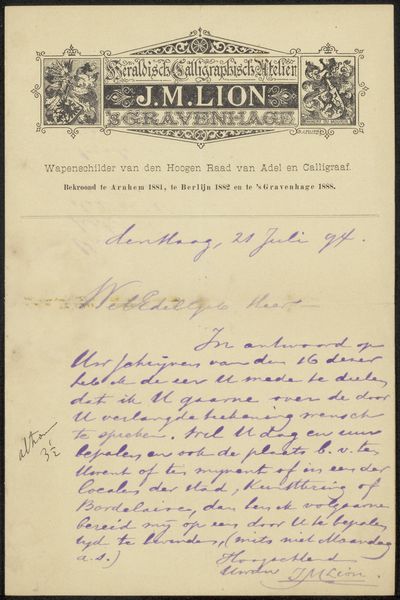 Heraldisch Calligraphisch Atelier
J.M. LION
'S GRAVENHAGE.
Wapenschilder van den Hoogen Raad van Adel en Calligraaf.
Bekroond te Arnhem 1881, te Berlijn 1882 en te 's Gravenhage 1888.
den Haag, 21 Juli 94.
WelEdelGeb Heer
In antwoord op
Uw schrijven van den 16 dezer
heb ik de eer U mede te deelen
dat ik U gaarne over de door
U verlangde teekening wensch
te spreken. Wil U dag en uur
bepalen en ook de plaats b.v. ten
Uwent of ten mijnent of in een der
locales der stad, Kunstkring of
Bordelaise, dan ben ik volgaarne
bereid mij op een door U te bepalen
tijd te bevinden, (mits niet Maandag
a.s.)
Hoogachtend
J M Lion.
3 1/2